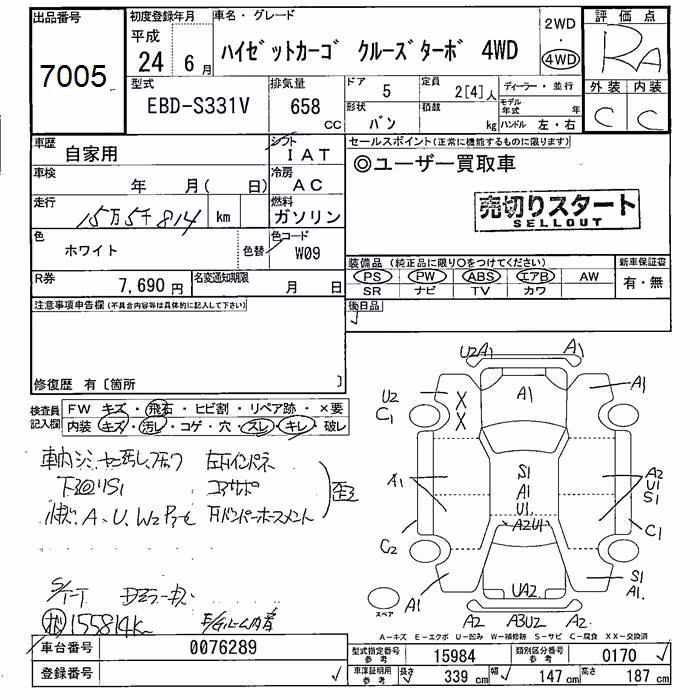 出品番号
7005
初度登録年月
平成
24 6月
車名・グレード
ハイゼットカーゴ クルーズターボ 4WD
2WD
・
4WD
評価点
RA
外装 内装
C C
型式
EBD-S331V
排気量
658
cc
ドア
5
定員
2[4]人
形状
バン
積載
kg
ディーラー・並行
モデル
年式 年
ハンドル 左・右
車歴
自家用
シフト
IAT
車検
年 月( 日)
冷房
AC
走行
15万5千814 km
燃料
ガソリン
色
ホワイト
色替
色コード
W09
R券
7,690円
名変通知期限
月 日
セールスポイント(正常に機能するものに限ります)
◎ユーザー買取車
売切りスタート
SELLOUT
装備品(純正品に限り○をつけてください)
PS PW ABS エアB AW
SR ナビ TV カワ
新車保証書
有・無
後日品
注意事項申告欄(不具合内容等は具体的に記入して下さい)
修復歴 有〔箇所 〕
検査員
記入欄
FW キズ・飛石・ヒビ割・リペア跡・×要
内装 キズ・汚レ・コゲ・穴・スレ・キレ・破レ
左Fインパネ
下回りS1
コアサポ
A、U、W2
155814K
U2A1 A1
U2 X X A1 A1
C1
A1 S1 A2
A1 U1
U1. S1
A2U1
C2 C1
A1 UA2 S1
A1.
スペア
A2 A3U2 A2
A－キズ E－エクボ U－凹み W－補修跡 S－サビ C－腐食 XX－交換済
車台番号 0076289
登録番号
型式指定番号
参考
15984
類別区分番号
参考
0170
車庫証明用
参考
長さ 339 cm 幅 147 cm 高さ 187 cm